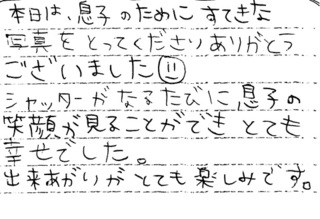 本日は、息子のために すてきな
写真をとってくださりありがとう
ございました
シャッターがなるたびに息子の
笑顔が見ることができ とても
幸せでした。
出来あがりが とても楽しみです。